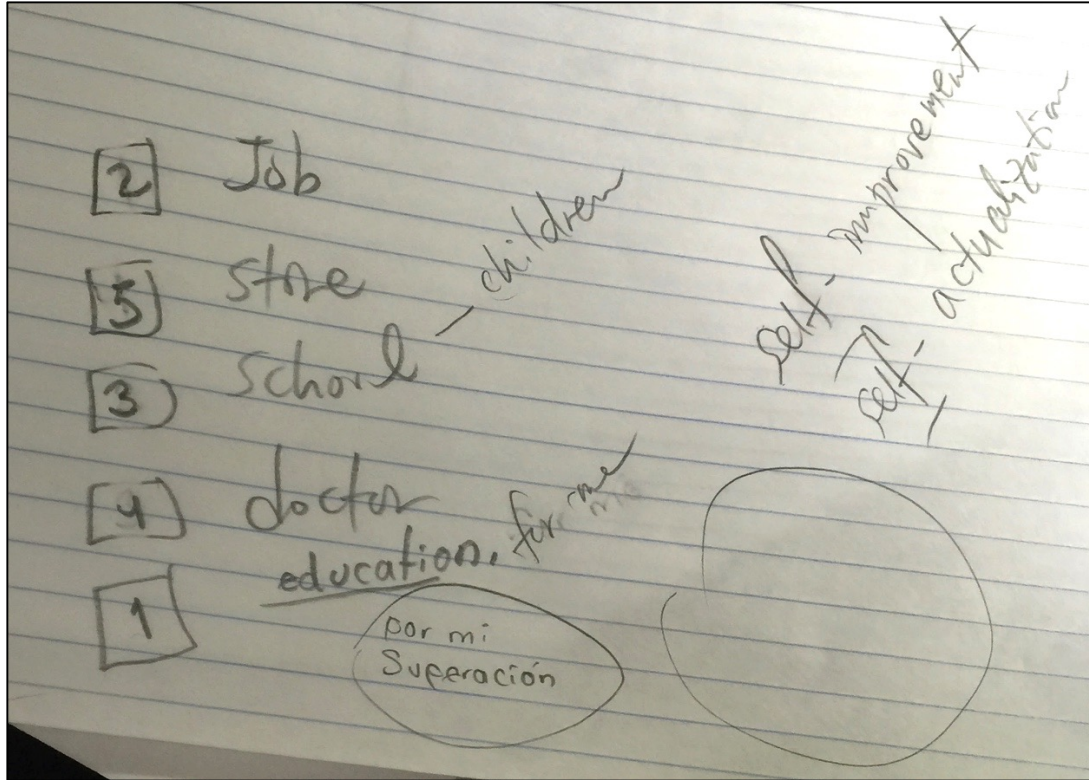 2 Job
5 store
3 school - children
4 doctor
education. for me
1
por mi
Superación
self-improvement
self-actualization